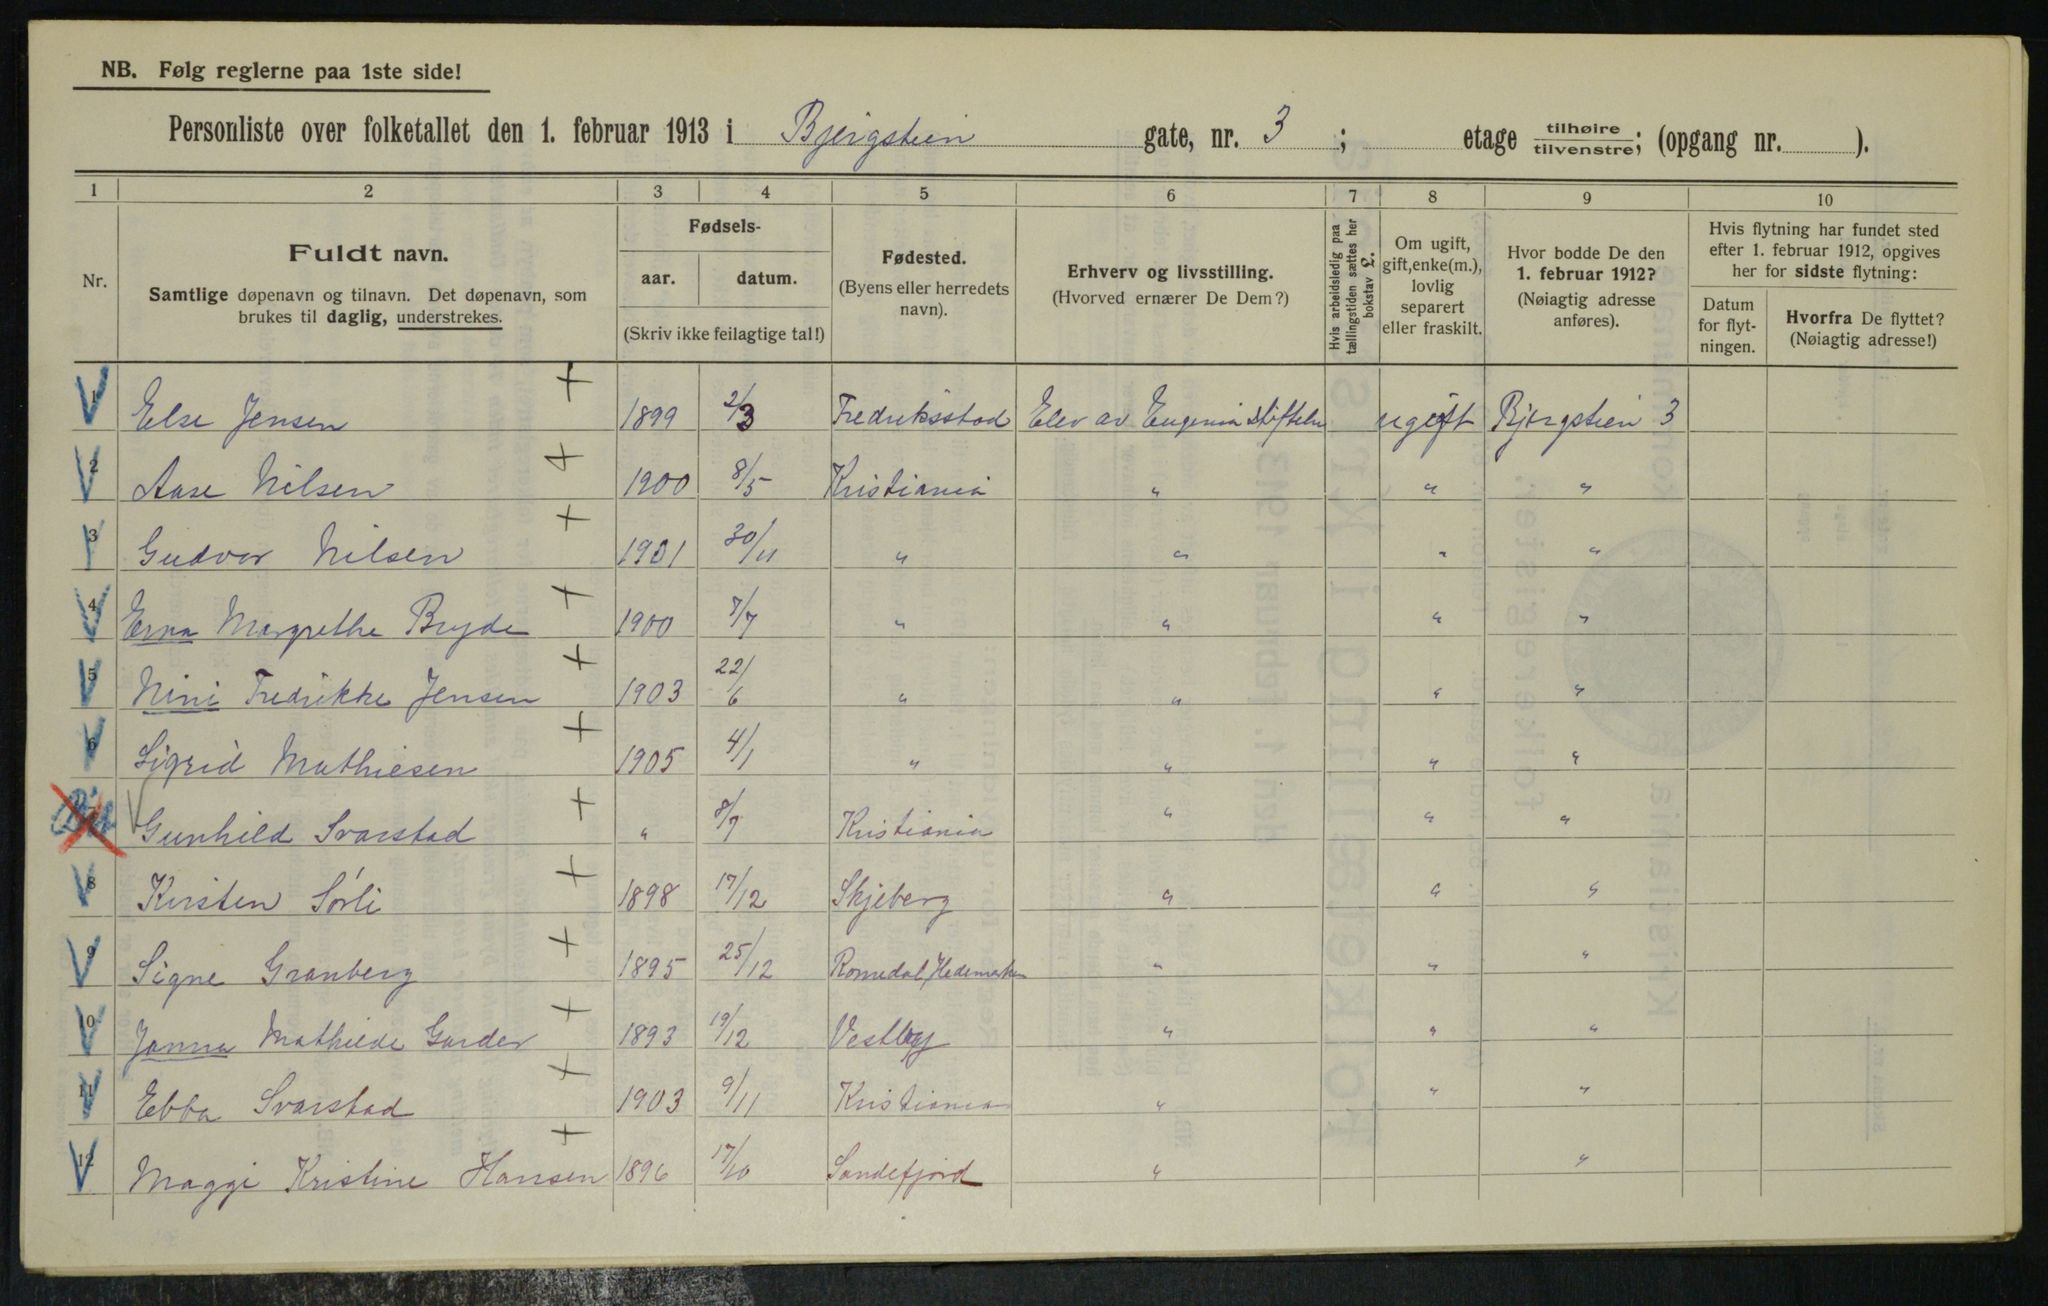 NB. Følg reglerne paa 1ste side!
Personliste over folketallet den 1. februar 1913 i Bjergstien gate, nr. 3 ; etage tilhøire tilvenstre; (opgang nr. ).
1 2 3 4 5 6 7 8 9 10
Nr.
Fuldt navn.
Samtlige døpenavn og tilnavn. Det døpenavn, som
brukes til daglig, understrekes.
Fødsels-
aar. datum.
(Skriv ikke feilagtige tal!)
Fødested.
(Byens eller herredets
navn).
Erhverv og livsstilling.
(Hvorved ernærer De Dem?)
Hvis arbeidsledig paa
tællingstiden sættes her
bokstav £.
Om ugift,
gift, enke(m.),
lovlig
separert
eller fraskilt.
Hvor bodde De den
1. februar 1912?
(Nøiagtig adresse
anføres).
Hvis flytning har fundet sted
efter 1. februar 1912, opgives
her for sidste flytning:
Datum
for flyt-
ningen.
Hvorfra De flyttet?
(Nøiagtig adresse!)
1 Else Jensen 1899 2/3 Fredriksstad Elev av Eugenia Stiftelse ugift Bjergstien 3
2 Aase Nilsen 1900 8/5 Kristiania " " "
3 Gudvor Nilsen 1901 30/11 " " " "
4 Erna Margrethe Bryde 1900 7/7 " " " "
5 Nini Fredrikke Jensen 1903 22/6 " " " "
6 Sigrid Mathiesen 1905 4/1 " " " "
7 Gunhild Svarstad " 8/7 Kristiania " " "
8 Kirsten Sörli 1898 17/12 Skjeberg " " "
9 Signe Granberg 1895 25/12 Romedal, Hedemarken " " "
10 Janna Mathilde Garder 1893 19/12 Vestby " " "
11 Ebba Svarstad 1903 9/11 Kristiania " " "
12 Maggi Kristine Hansen 1896 17/10 Sandefjord " "